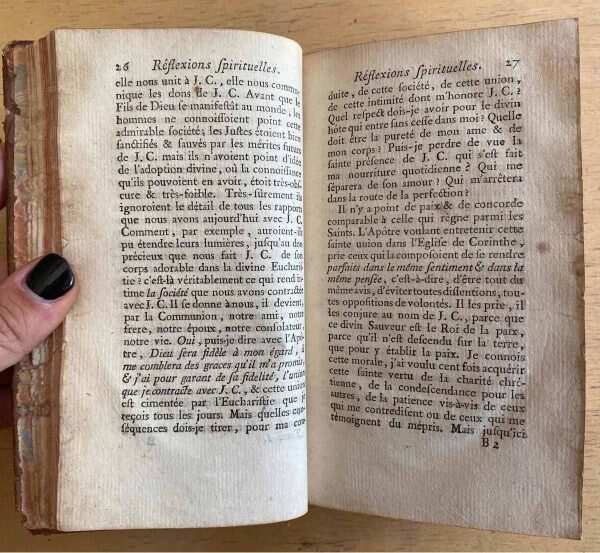 26 Réflexions spirituelles.
elle nous unit à J. C., elle nous commu-
nique les dons de J. C. Avant que le
Fils de Dieu se manifestât au monde, les
hommes ne connoissoient point cette
admirable société; les Justes étoient bien
sanctifiés & sauvés par les mérites futurs
de J. C. mais ils n'avoient point d'idée
de l'adoption divine, où la connoissance
qu'ils pouvoient en avoir, étoit très-obs-
cure & très-foible. Très-sûrement ils
ignoroient le détail de tous les rapports
que nous avons aujourd'hui avec J. C.
Comment, par exemple, auroient-ils
pu étendre leurs lumières, jusqu'au don
précieux que nous fait J. C. de son
corps adorable dans la divine Eucharis-
tie? c'est-là véritablement ce qui rend in-
time la société que nous avons contractée
avec J. C. Il se donne à nous, il devient,
par la Communion, notre ami, notre
frere, notre époux, notre consolateur,
notre vie. Oui, puis-je dire avec l'Apô-
tre, Dieu sera fidèle à mon égard, il
me comblera des graces qu'il m'a promises
& j'ai pour garant de sa fidélité, l'union
que je contracte avec J. C., & cette union
est cimentée par l'Eucharistie que je
reçois tous les jours. Mais quelles con-
séquences dois-je tirer, pour ma con-
Réflexions spirituelles. 27
duite, de cette société, de cette union,
de cette intimité dont m'honore J. C.?
Quel respect dois-je avoir pour le divin
hôte qui entre sans cesse dans moi? Quelle
doit être la pureté de mon ame & de
mon corps? Puis-je perdre de vue la
sainte présence de J. C. qui s'est fait
ma nourriture quotidienne? Qui me
séparera de son amour? Qui m'arrêtera
dans la route de la perfection?
Il n'y a point de paix & de concorde
comparable à celle qui règne parmi les
Saints. L'Apôtre voulant entretenir cette
sainte union dans l'Eglise de Corinthe,
prie ceux qui la composoient de se rendre
parfaits dans le même sentiment & dans la
même pensée, c'est-à-dire, d'être tout du
même avis, d'éviter toutes dissentions, tou-
tes oppositions de volontés. Il les prie, il
les conjure au nom de J. C., parce que
ce divin Sauveur est le Roi de la paix,
parce qu'il n'est descendu sur la terre,
que pour y établir la paix. Je connois
cette morale, j'ai voulu cent fois acquérir
cette sainte vertu de la charité chré-
tienne, de la condescendance pour les
autres, de la patience vis-à-vis de ceux
qui me contredisent ou de ceux qui me
témoignent du mépris. Mais jusqu'ici
B 2